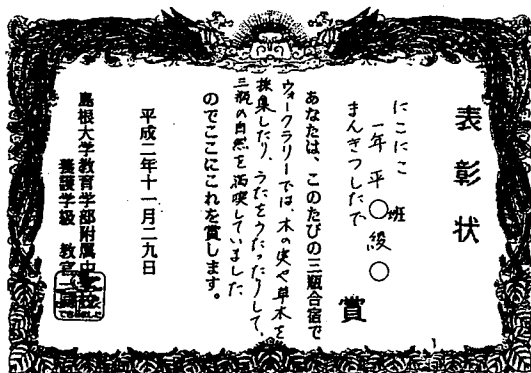 表彰状
にこにこ班
一年 平○級○
まんきつしたで賞
あなたは、このたびの三瓶合宿で
ウォークラリーでは、木の実や草木を
採集したり、うたをうたったりして、
三瓶の自然を満喫していました
のでここにこれを賞します。
平成二年十一月二九日
島根大学教育学部附属中学校
養護学級 教官一同